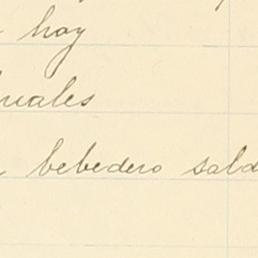 hay
uales
bebedero sald